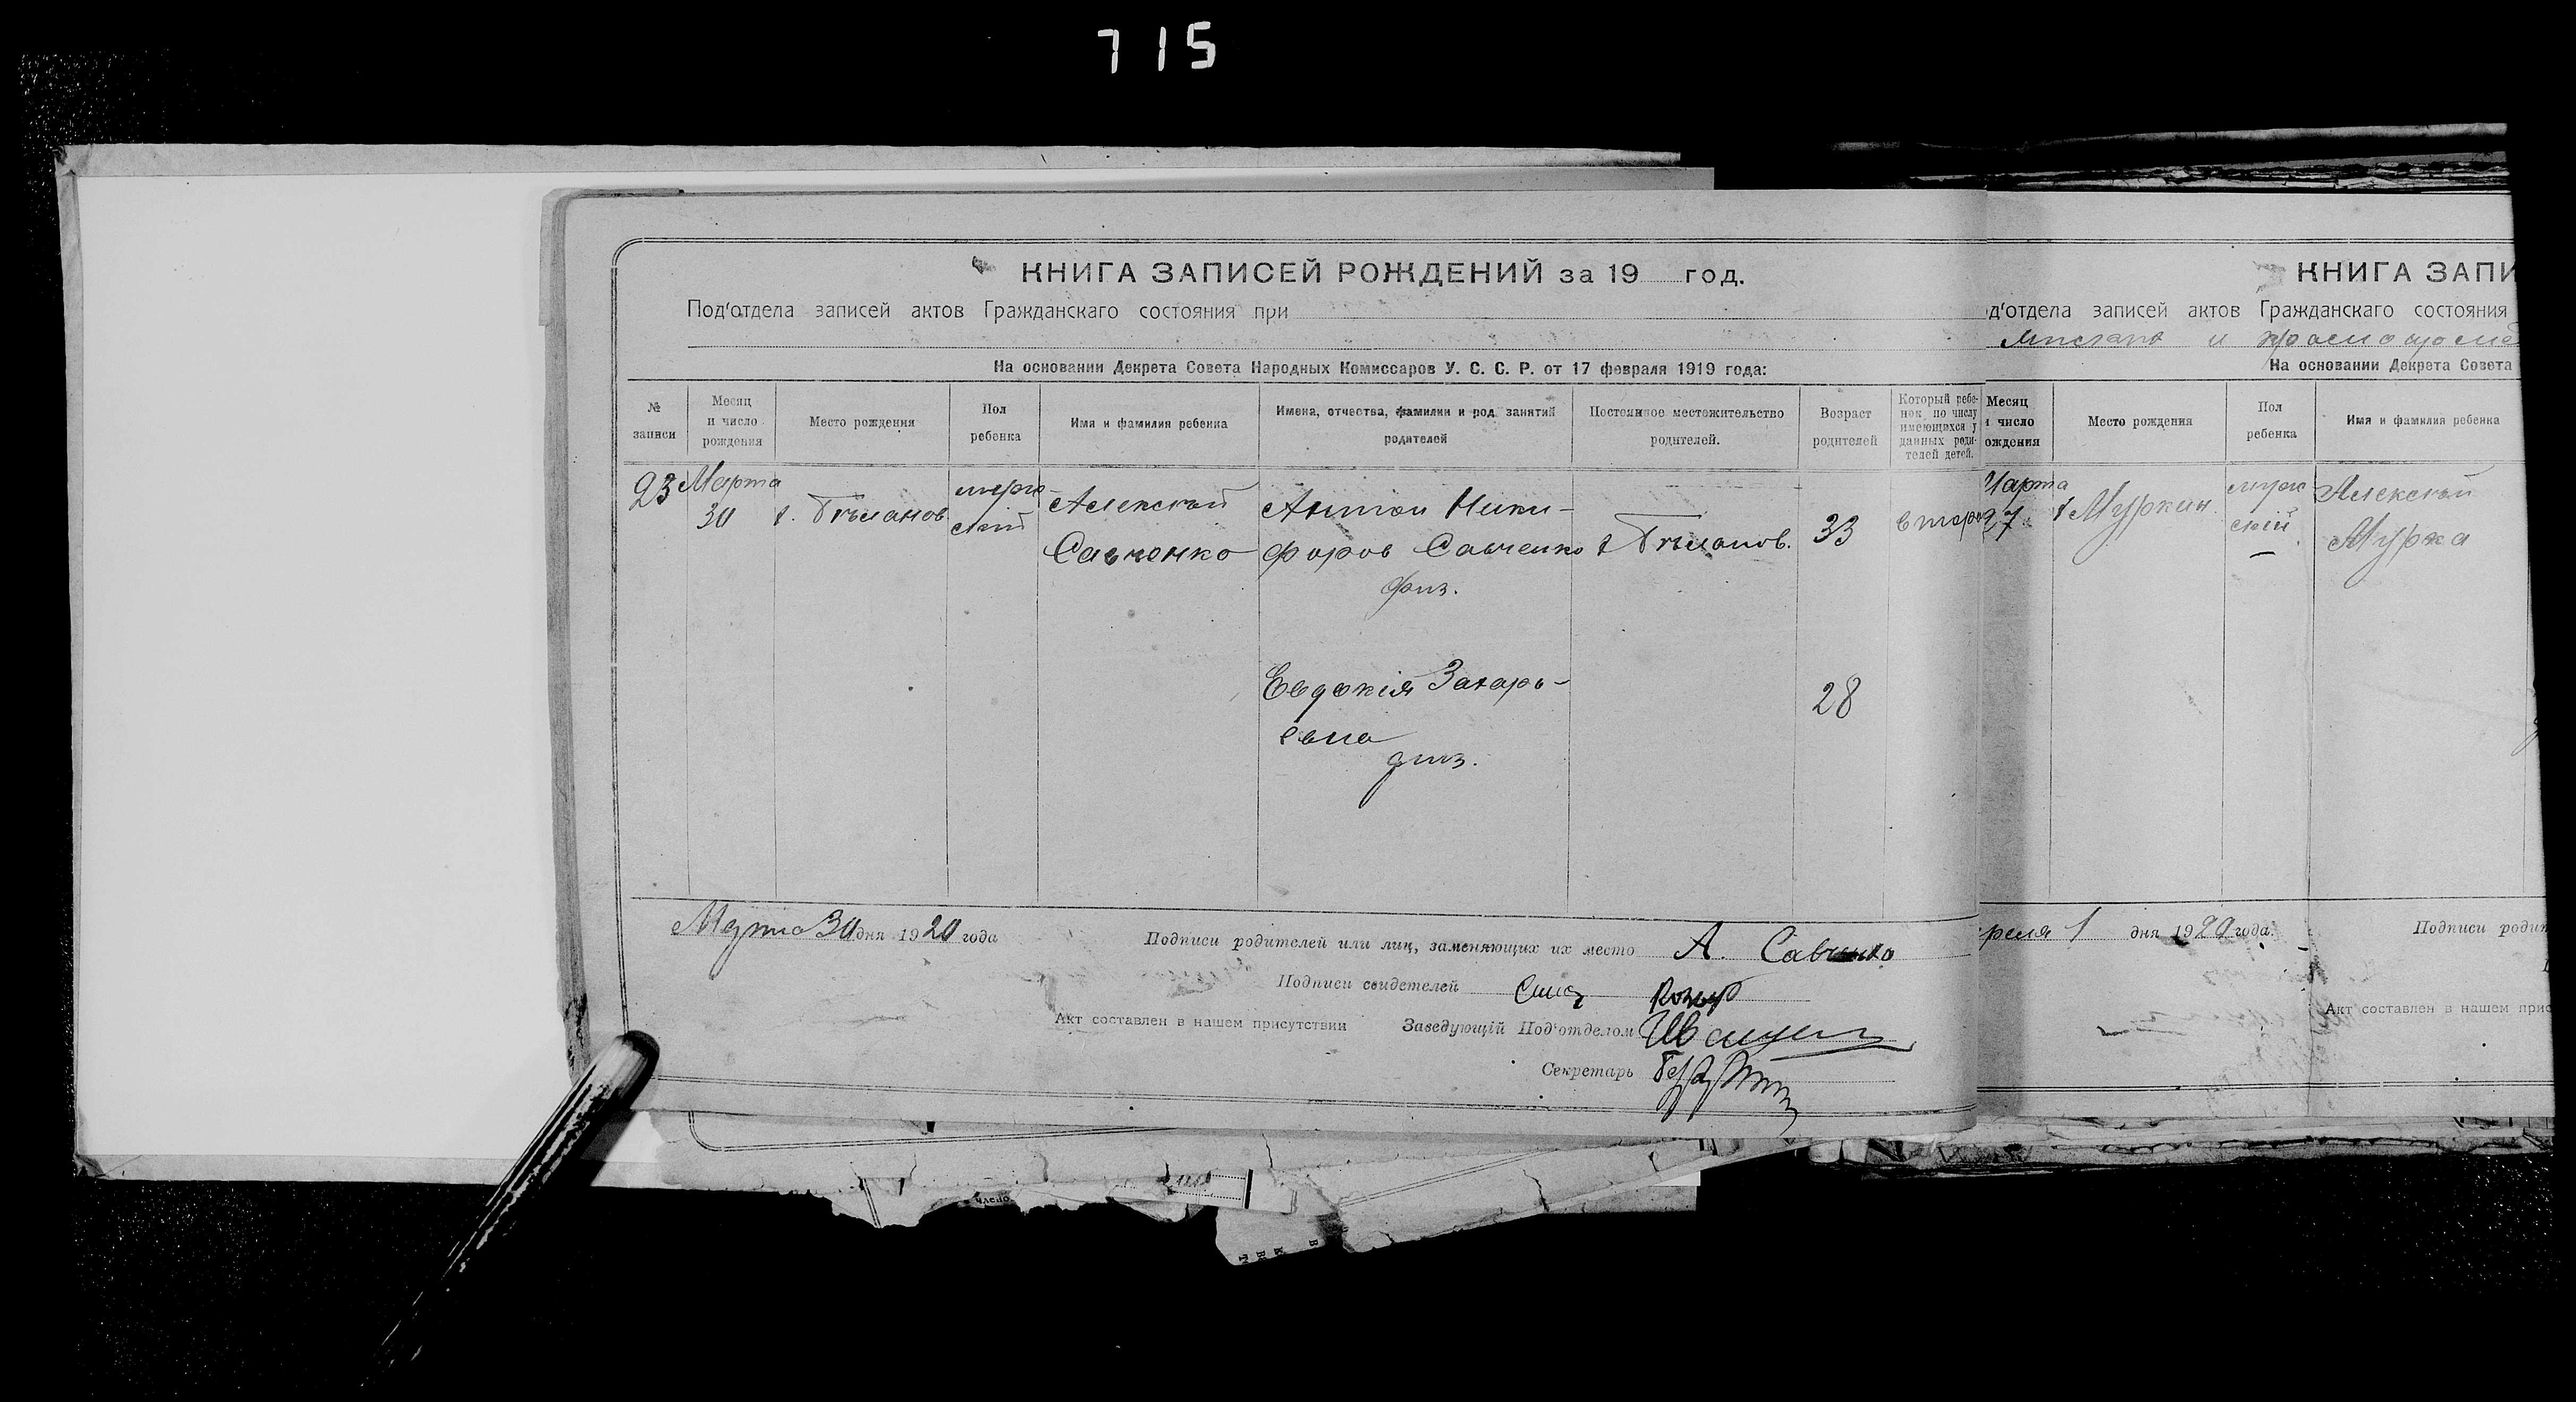 715
КНИГА ЗАПИСЕЙ РОЖДЕНИЙ за 19 год.
Под'отдела записей актов Гражданскаго состояния при
На основании Декрета Совета Народных Комиссаров У. С. С. Р. от 17 февраля 1919 года:
№ записи
Месяц и число рождения
Место рождения
Пол ребенка
Имя и фамилия ребенка
Имена, отчества, фамилии и род занятий родителей
Постоянное местожительство родителей.
Возраст родителей
Который ребенок по числу имеющихся у данных родителей детей.
23
Марта
30
муж-
ский
Алексей
Савченко
Антон Ники-
форов Савченко
физ.
33
Евдокія Захарь-
евна
физ.
28
Марта 30 дня 1920 года
Подписи родителей или лиц, заменяющих их место А. Савченко
Подписи свидетелей
Акт составлен в нашем присутствии Заведующій Под'отделом
Секретарь
КНИГА ЗАПИ
д'отдела записей актов Гражданскаго состояния
На основании Декрета Совета
Месяц
и число
ождения
Место рождения
Пол ребенка
Имя и фамилия ребенка
Марта
27
муж
скій
Алексей
Мурха
реля 1 дня 1920 года.
Подписи роди
Акт составлен в нашем прис